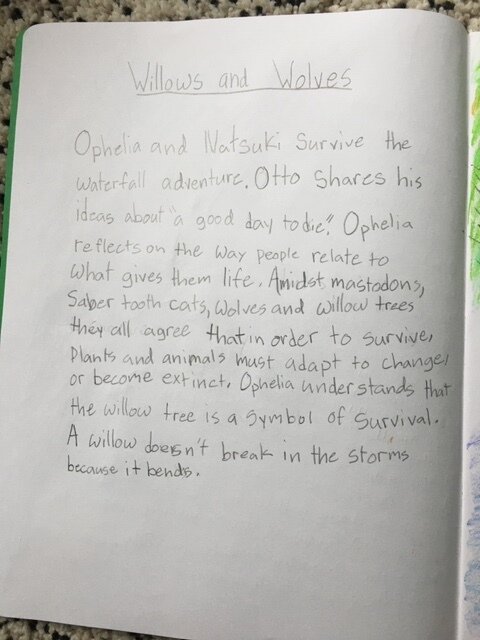 Willows and Wolves
Ophelia and Natsuki survive the
waterfall adventure. Otto shares his
ideas about "a good day to die". Ophelia
reflects on the way people relate to
what gives them life. Amidst mastodons,
Saber tooth cats, wolves and willow trees
they all agree that in order to survive,
plants and animals must adapt to change,
or become extinct. Ophelia understands that
the willow tree is a symbol of survival.
A willow doesn't break in the storms
because it bends.